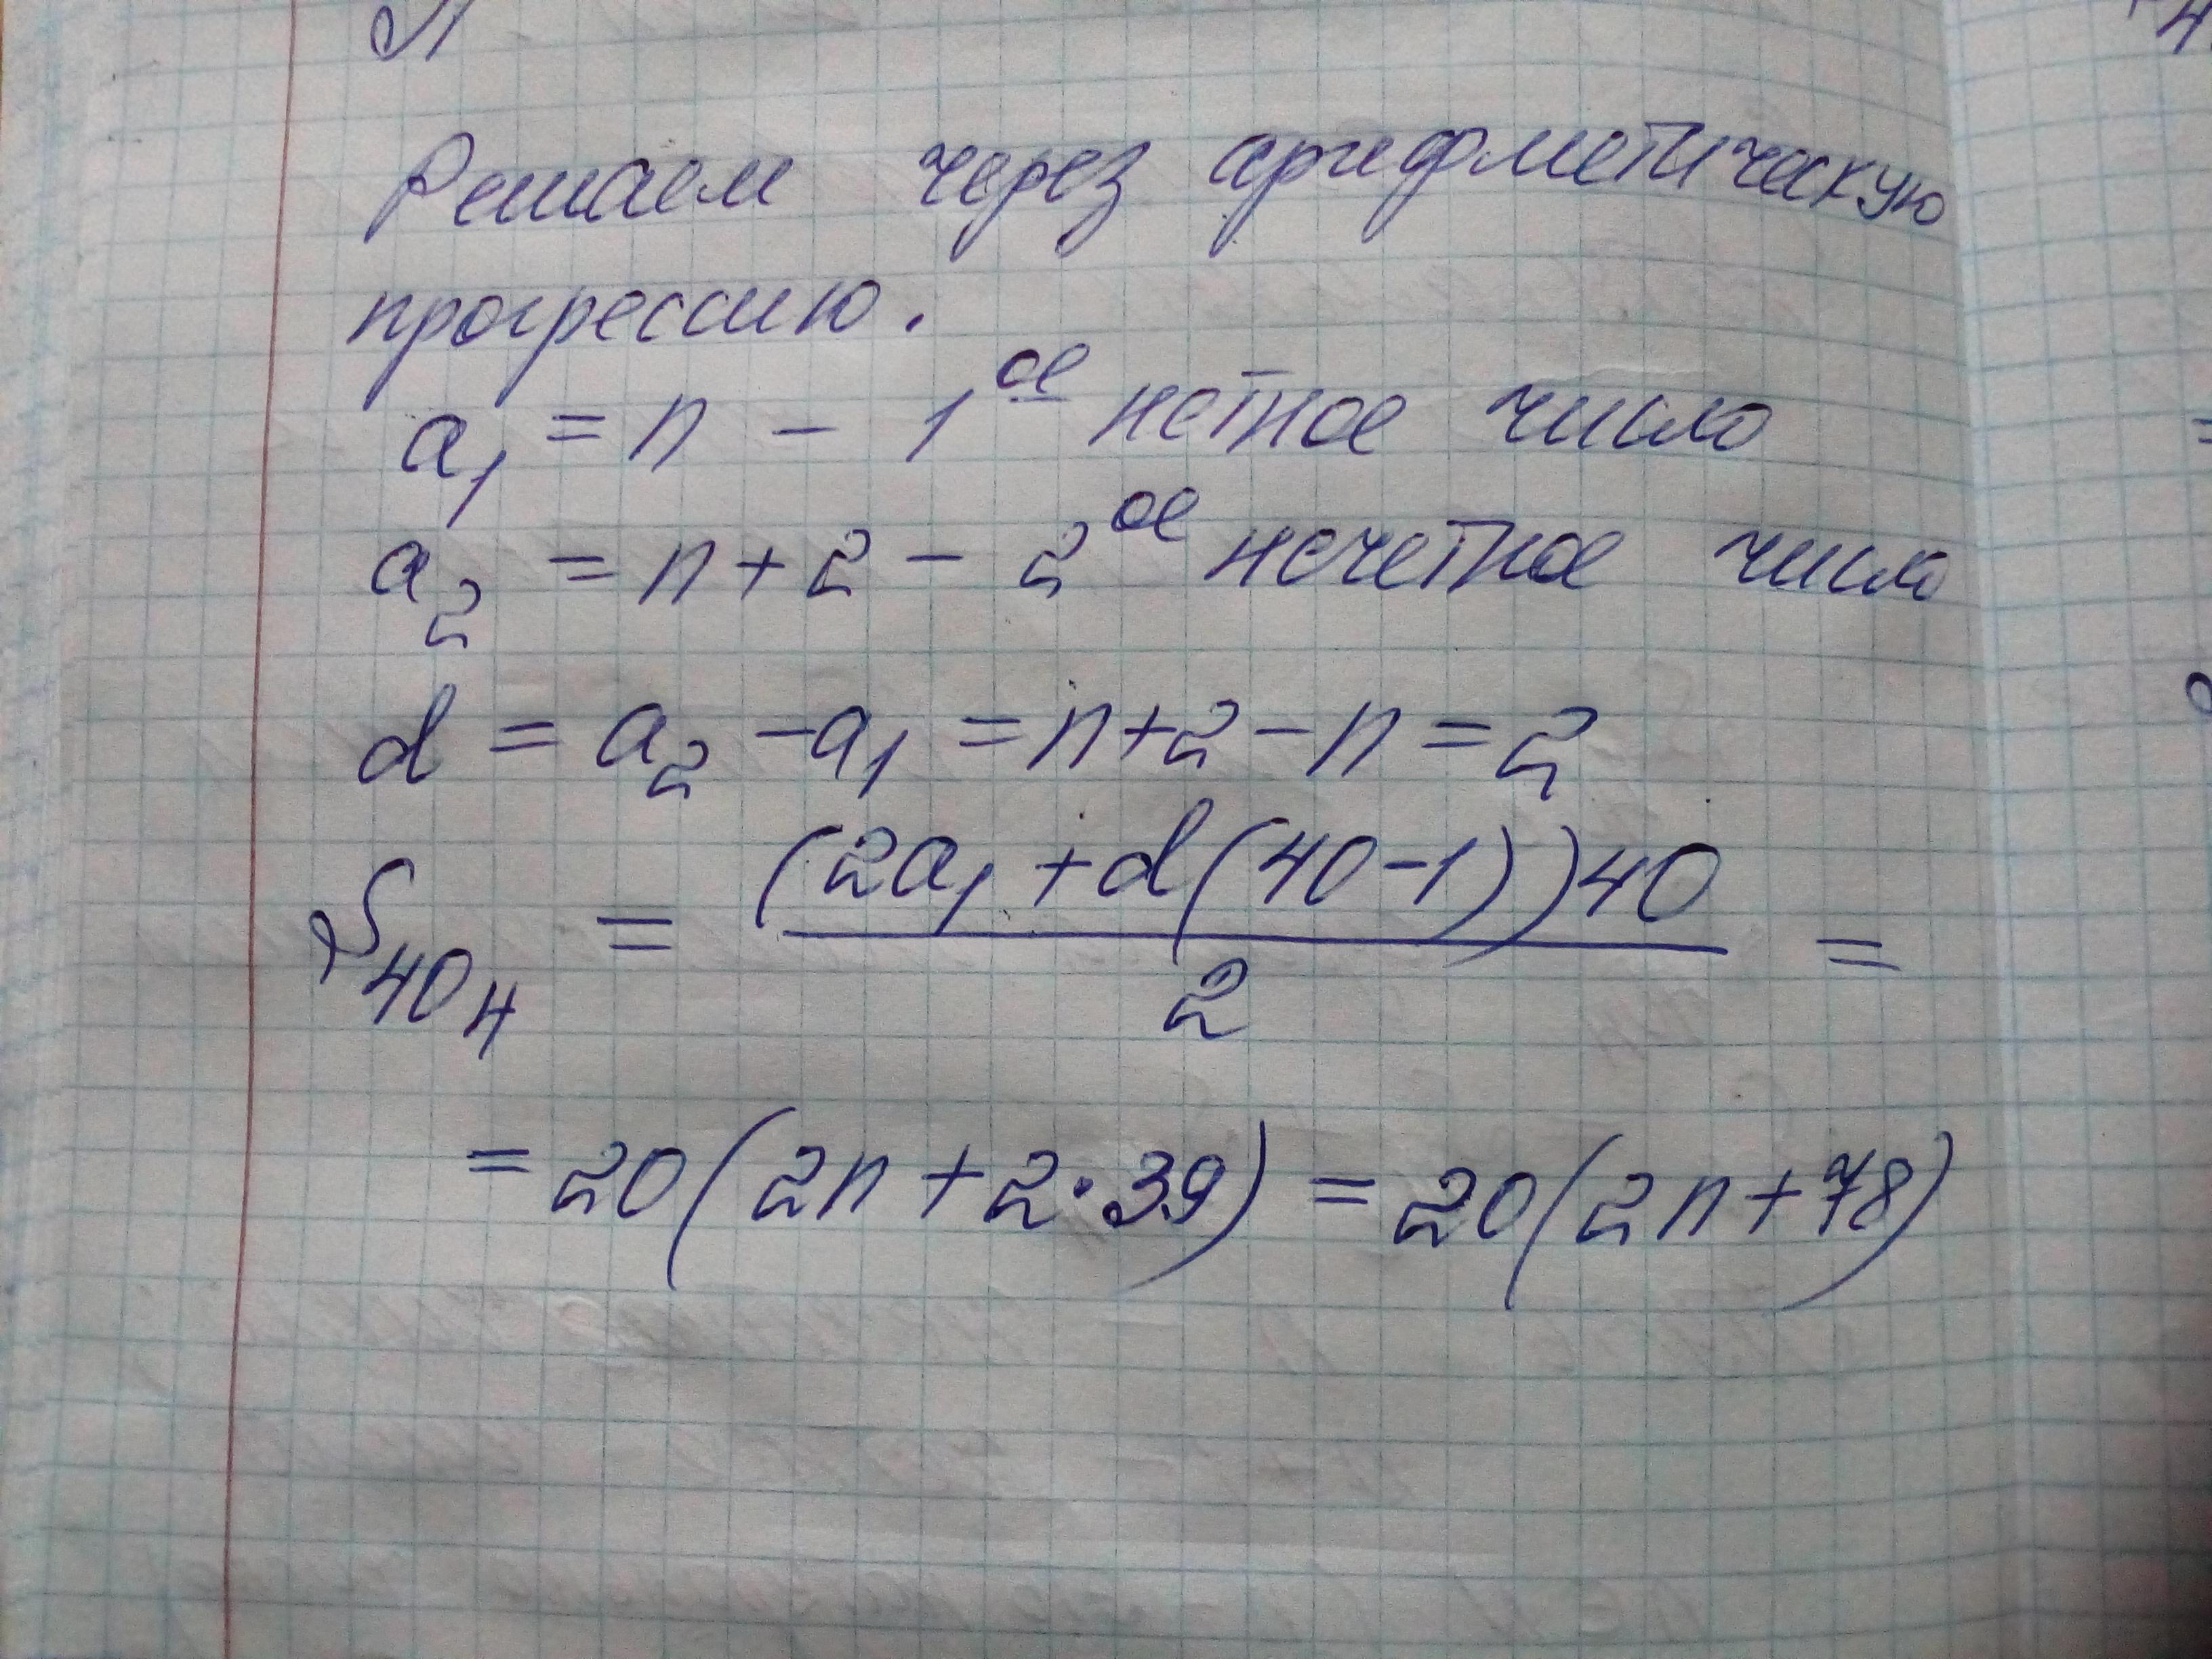 Решаем через арифметическую
прогрессию.
a₁ = n - 1ое нетное число
a₂ = n + 2 - 2ое нечетное число
d = a₂ - a₁ = n + 2 - n = 2
S₄₀ₙ = (2a₁ + d(40-1))40 / 2 =
= 20(2n + 2·39) = 20(2n + 78)